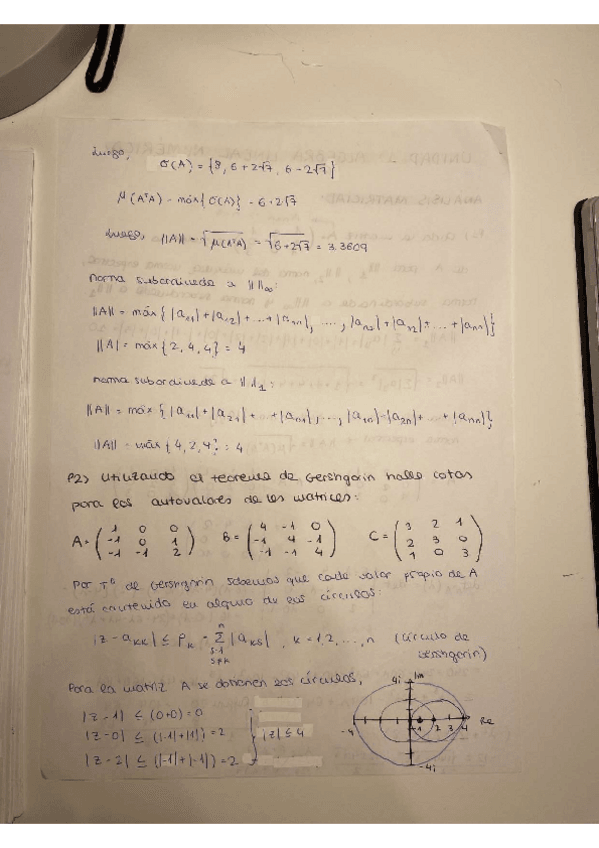 Luego,
σ(A) = {8, 6+2√7, 6-2√7}
μ(AᵗA) = máx{σ(A)} = 6+2√7
Luego, ||A|| = √μ(AᵗA) = √6+2√7 = 3.3609
norma subordinada a || ||∞:
||A|| = máx{|a₁₁|+|a₁₂|+...+|a₁ₙ|, ...., |aₙ₁|+|aₙ₂|+...+|aₙₙ|}
||A| = máx{2,4,4} = 4
norma subordinada a || ||₁:
||A|| = máx{|a₁₁|+|a₂₁|+...+|aₙ₁|, ..., |a₁ₙ|+|a₂ₙ|+...+|aₙₙ|}
||A|| = máx{4,2,4} = 4
P2) Utilizando el teorema de Gershgorin halle cotas
para los autovalores de las matrices:
A = ( 1 0 0 B = ( 4 -1 0 C = ( 3 2 1
-1 0 1 -1 4 -1 2 3 0
-1 -1 2 ) -1 -1 4 ) 1 0 3 )
Por Tª de Gershgorin sabemos que cada valor propio de A
está contenido en alguno de los círculos:
|z - aₖₖ| ≤ ρₖ = Σ |aₖⱼ|, k = 1,2,...,n (círculo de
Gershgorin)
Para la matriz A se obtienen los círculos,
|z-1| ≤ (0+0) = 0
|z-0| ≤ (|-1|+|1|) = 2 } |z| ≤ 4
|z-2| ≤ (|-1|+|-1|) = 2
4i Im
-4 1 2 3 4 Re
-4i